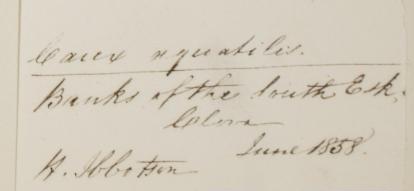 Carex aquatilis.
Banks of the South Esk.
Clova
June 1858.
H. Ibbotson